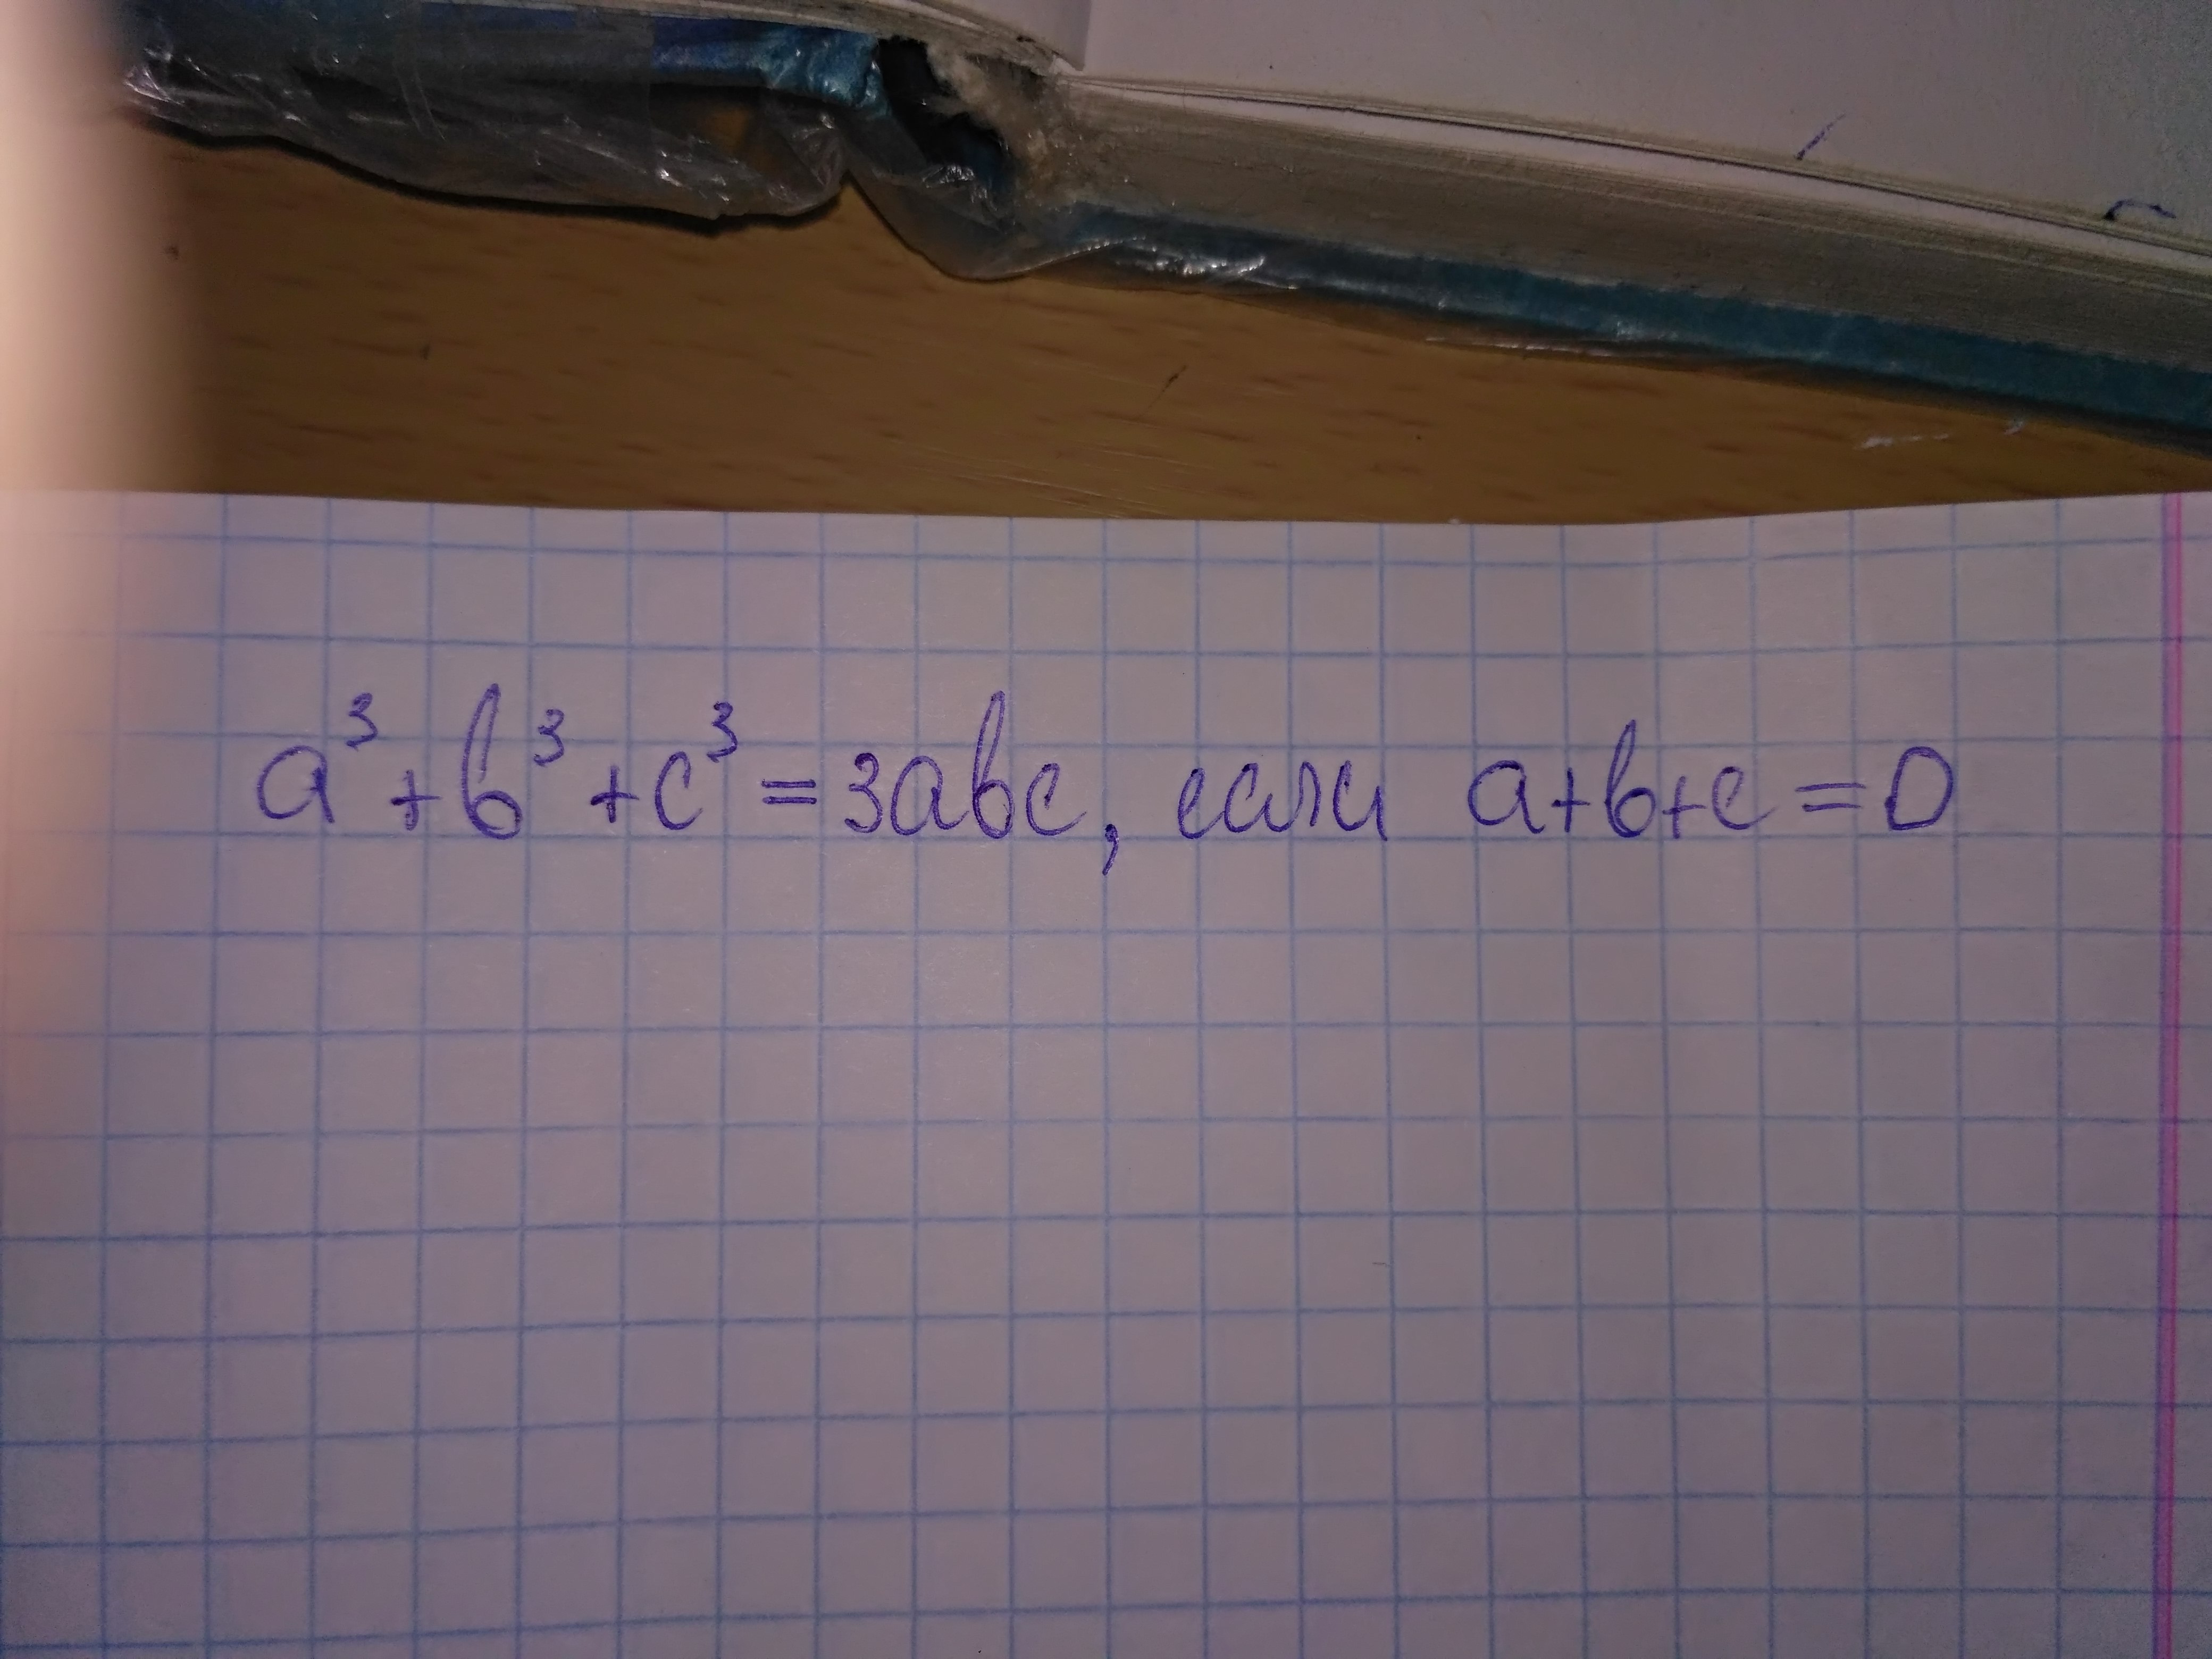 a³+b³+c³=3abc, если a+b+c=0